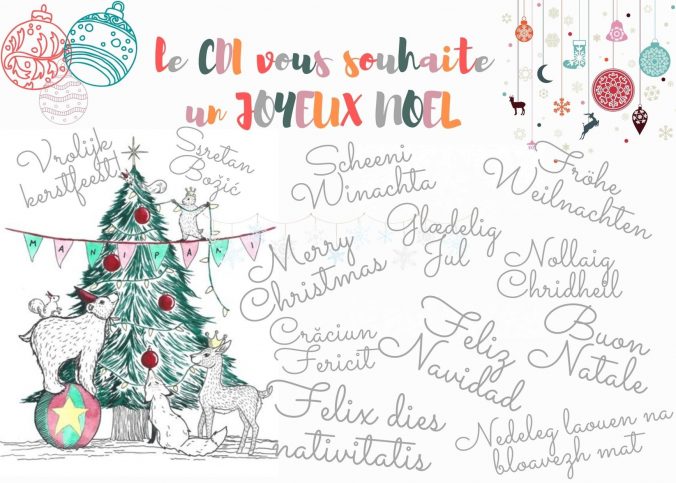 le CDI vous souhaite
un JOYEUX NOEL
Vrolijk
kerstfeest!
Sretan
Božić
Scheeni
Winachta
Fröhe
Weilnachten
Glædelig
Jul
Merry
Christmas
Nollaig
Chridheil
MANIPANI
Crăciun
Fericit
Feliz
Navidad
Buon
Natale
Felix dies
nativitatis
Nedeleg laouen na
bloavezh mat